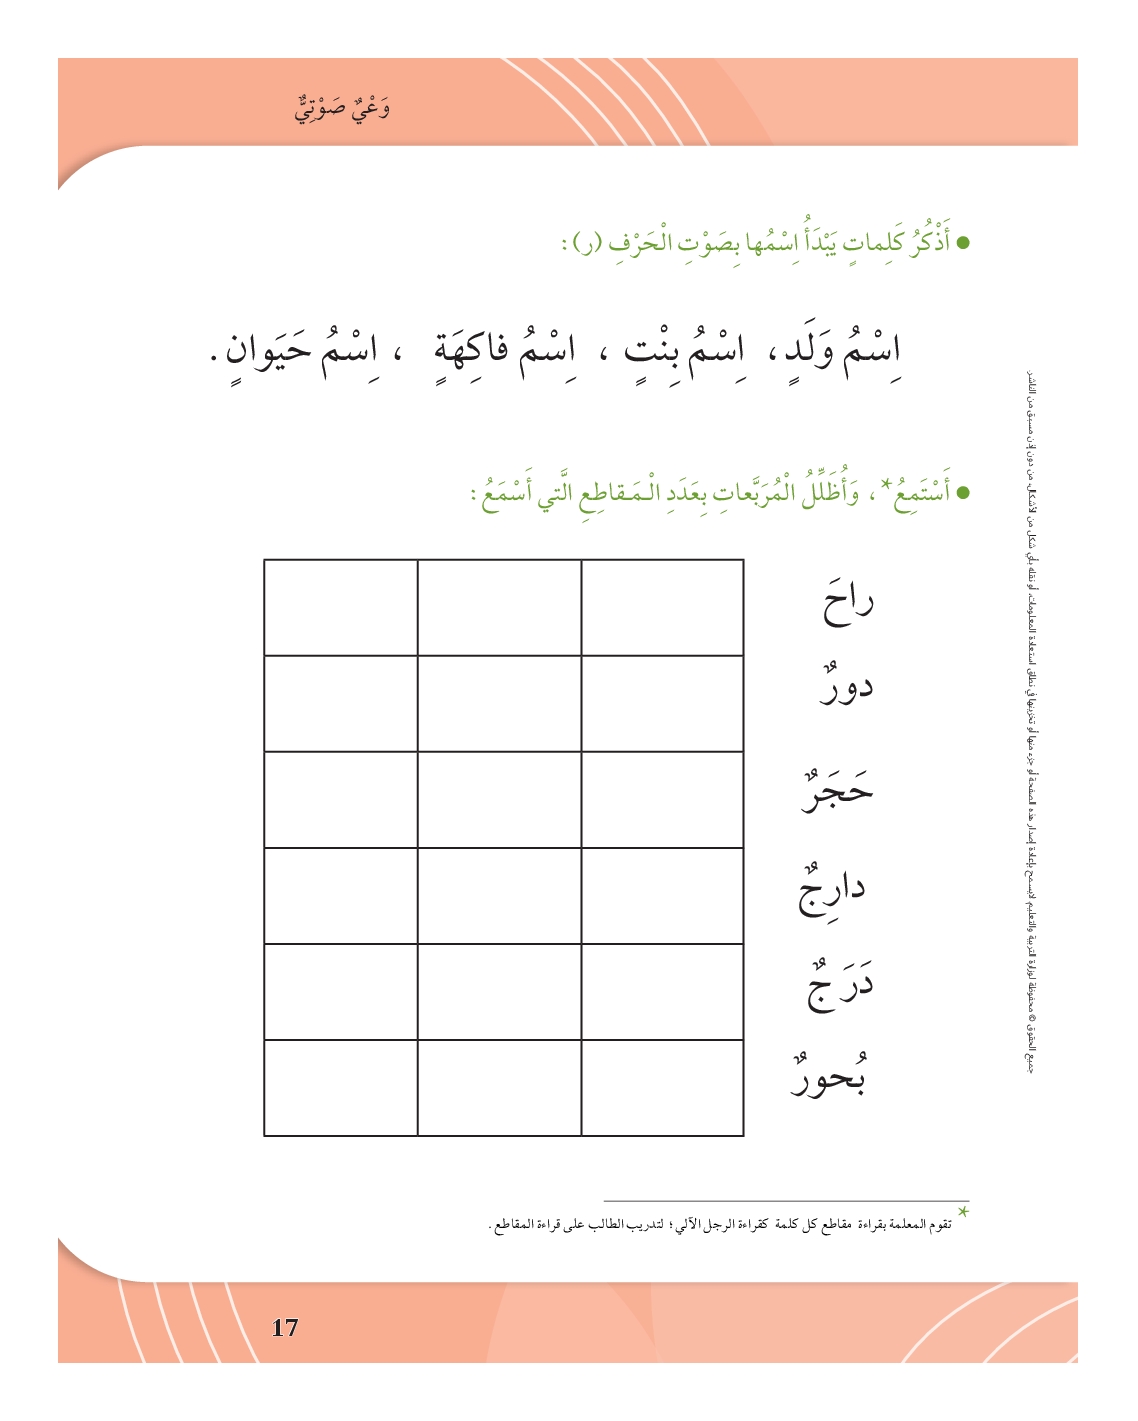 وَعْيٌ صَوْتِيٌّ
أَذْكُرُ كَلِماتٍ يَبْدَأُ اِسْمُها بِصَوْتِ الْحَرْفِ (ر):
اِسْمُ وَلَدٍ، اِسْمُ بِنْتٍ ، اِسْمُ فاكِهَةٍ ، اِسْمُ حَيَوانٍ .
أَسْتَمِعُ*، وَأُظَلِّلُ الْمُرَبَّعاتِ بِعَدَدِ الْـمَـقاطِعِ الَّتي أَسْمَعُ:
راحَ
دورٌ
حَجَرٌ
دارِجٌ
دَرَجٌ
بُحورٌ
* تقوم المعلمة بقراءة مقاطع كل كلمة كقراءة الرجل الآلي؛ لتدريب الطالب على قراءة المقاطع.
جميع الحقوق © محفوظة لوزارة التربية والتعليم. لايسمح بإعادة إصدار هذه الصفحة أو جزء منها أو تخزينها في نطاق استعادة المعلومات، أو نقله بأي شكل من الأشكال، من دون إذن مسبق من الناشر.
17